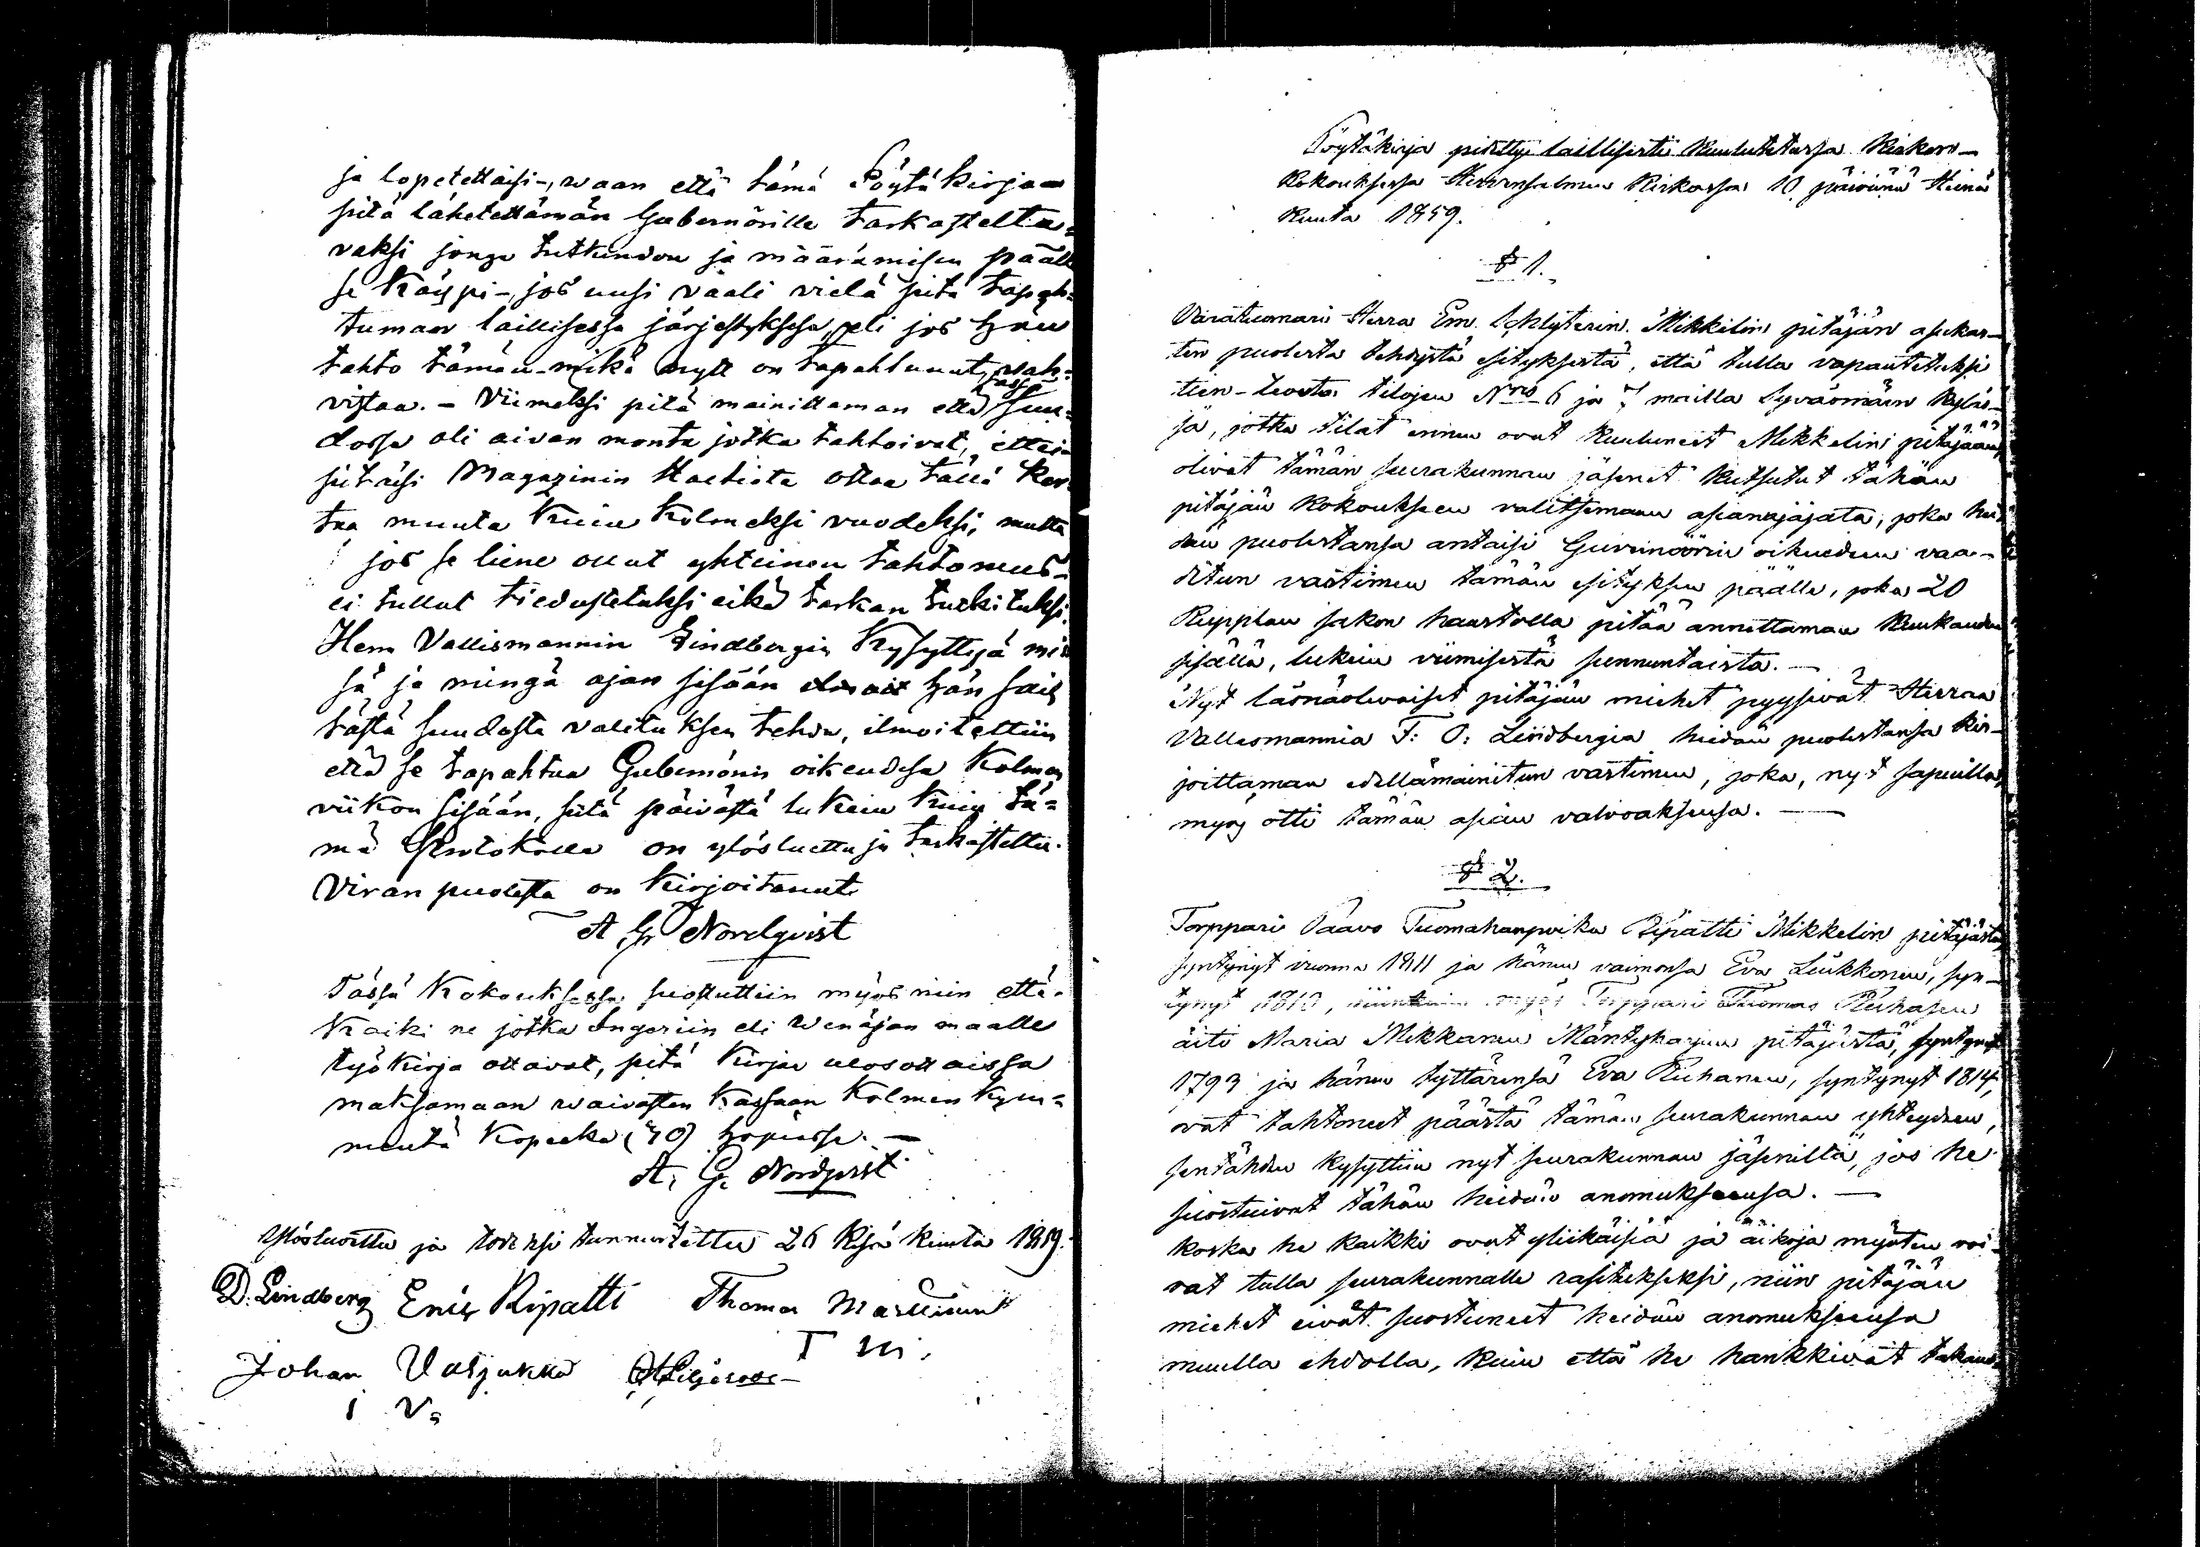 ja lopetettaisi-, waan että tämä Pöytäkirjaa
pitä lähetettämän Gubernörille tarkastelta-
vaksi jonga tuttundon ja määrämisen päälle
se käypi-, jos uusi vaali vielä pitä tapah-
tuman laillisessa järjestyksesä, eli jos hän
tahto tämän-mikä nytt on tapahtunut, wah-
vistaa. - Viimeksi pitä mainittaman että tässä suu-
dossa oli aivan monta jotka tahtoivat, ettei
pitäisi Magazinin Haltiata ottaa tällä ker
taa muuta kuin kolmeksi vuodeksi; mutta
jos se liene ollut yhteinen tahtomus-
ei tullut tiedustetuksi eikä tarkan tutkituksi.
Herra Vallismannin Lindbergin kysyttyä mis
sä ja mingä ajan sisään hän sais
tästä suudosta valituksen tehdä, ilmoitettiin
että se tapahtuu Gubernörin oikeudesa kolmen
viikon sisään, siitä päivästä lukein kuin tä-
mä Protokolla on ylösluettu ja tarkasteltu.
Viran puolesta on kirjoitanut
A G Nordqvist
Tässä Kokouksessa suostuttiin myös niin että-
kaiki ne jotka Ingeriin eli wenäjän maalle
työkirja ottavat, pitä kirjan ulosottaissa
maksamaan waivasten kassaan kolmen kym-
mentä kopeeka (30) hopeassa. -
A. G. Nordqvist
Ylösluettu ja todeksi tunnustettu 26 Kesä kuuta 1859.
D. Lindberg Enir Ripatti Thomas Marttinen
T M.
Johan Valjukka
I V.
Pöytäkirja pidetty laillisesti kuulutetussa Kirkon-
kokouksessa Hirvensalmen Kirkossa 10 päivänä Heinä
kuuta 1859.
§ 1.
Varatuomari Herra Em. Schlyterin Mikkelin pitäjän asukas-
ten puolesta tehdystä esityksestä, että tulla vapautetuksi
tien-teosta tilojen Nro 6 ja 7 mailla Syväsmäen kyläs-
sä, jotka tilat ennen ovat kuuluneet Mikkelin pitäjään,
olivat tämän seurakunnan jäsenet kutsutut tähän
pitäjän kokoukseen valitsemaan asianajajata, joka hei-
dän puolestansa antaisi Guvernöörin oikeuden vaa-
ditun vastimen tämän esityksen päälle, joka 20
Ruplan sakon haastolla pitää annittaman kuukauden
sisällä, lukein viimisestä sunnuntaista. —
Nyt läsnäolevaiset pitäjän miehet pyysivät Herraa
Vallesmannia F: O: Lindbergia heidän puolestansa kir-
joittaman edellämainitun vastimen, joka, nyt sapuilla,
myös otti tämän asian valvoaksensa. —
§ 2.
Torppari Paavo Tuomahanpoika Ripatti Mikkelin pitäjästä,
syntynyt vuonna 1811 ja hänen vaimonsa Eva Liukkonen, syn-
tynyt 1813, niinkuin myös Torppari Thomas Pieihasen
äiti Maria Mikkanen Mäntyharjun pitäjästä, syntynyt
1793 ja hänen tyttärensä Eva Pieihanen, syntynyt 1814,
ovat tahtoneet päästä tämän seurakunnan yhteyteen,
sentähden kysyttiin nyt seurakunnan jäseniltä, jos he
suostuivat tähän heidän anomukseensa. —
Koska he kaikki ovat yliikäisiä ja aikoja myöten voi-
vat tulla seurakunnalle rasitukseksi, niin pitäjän
miehet eivät suostuneet heidän anomukseensa
muulla ehdolla, kuin että he hankkivat takaus-